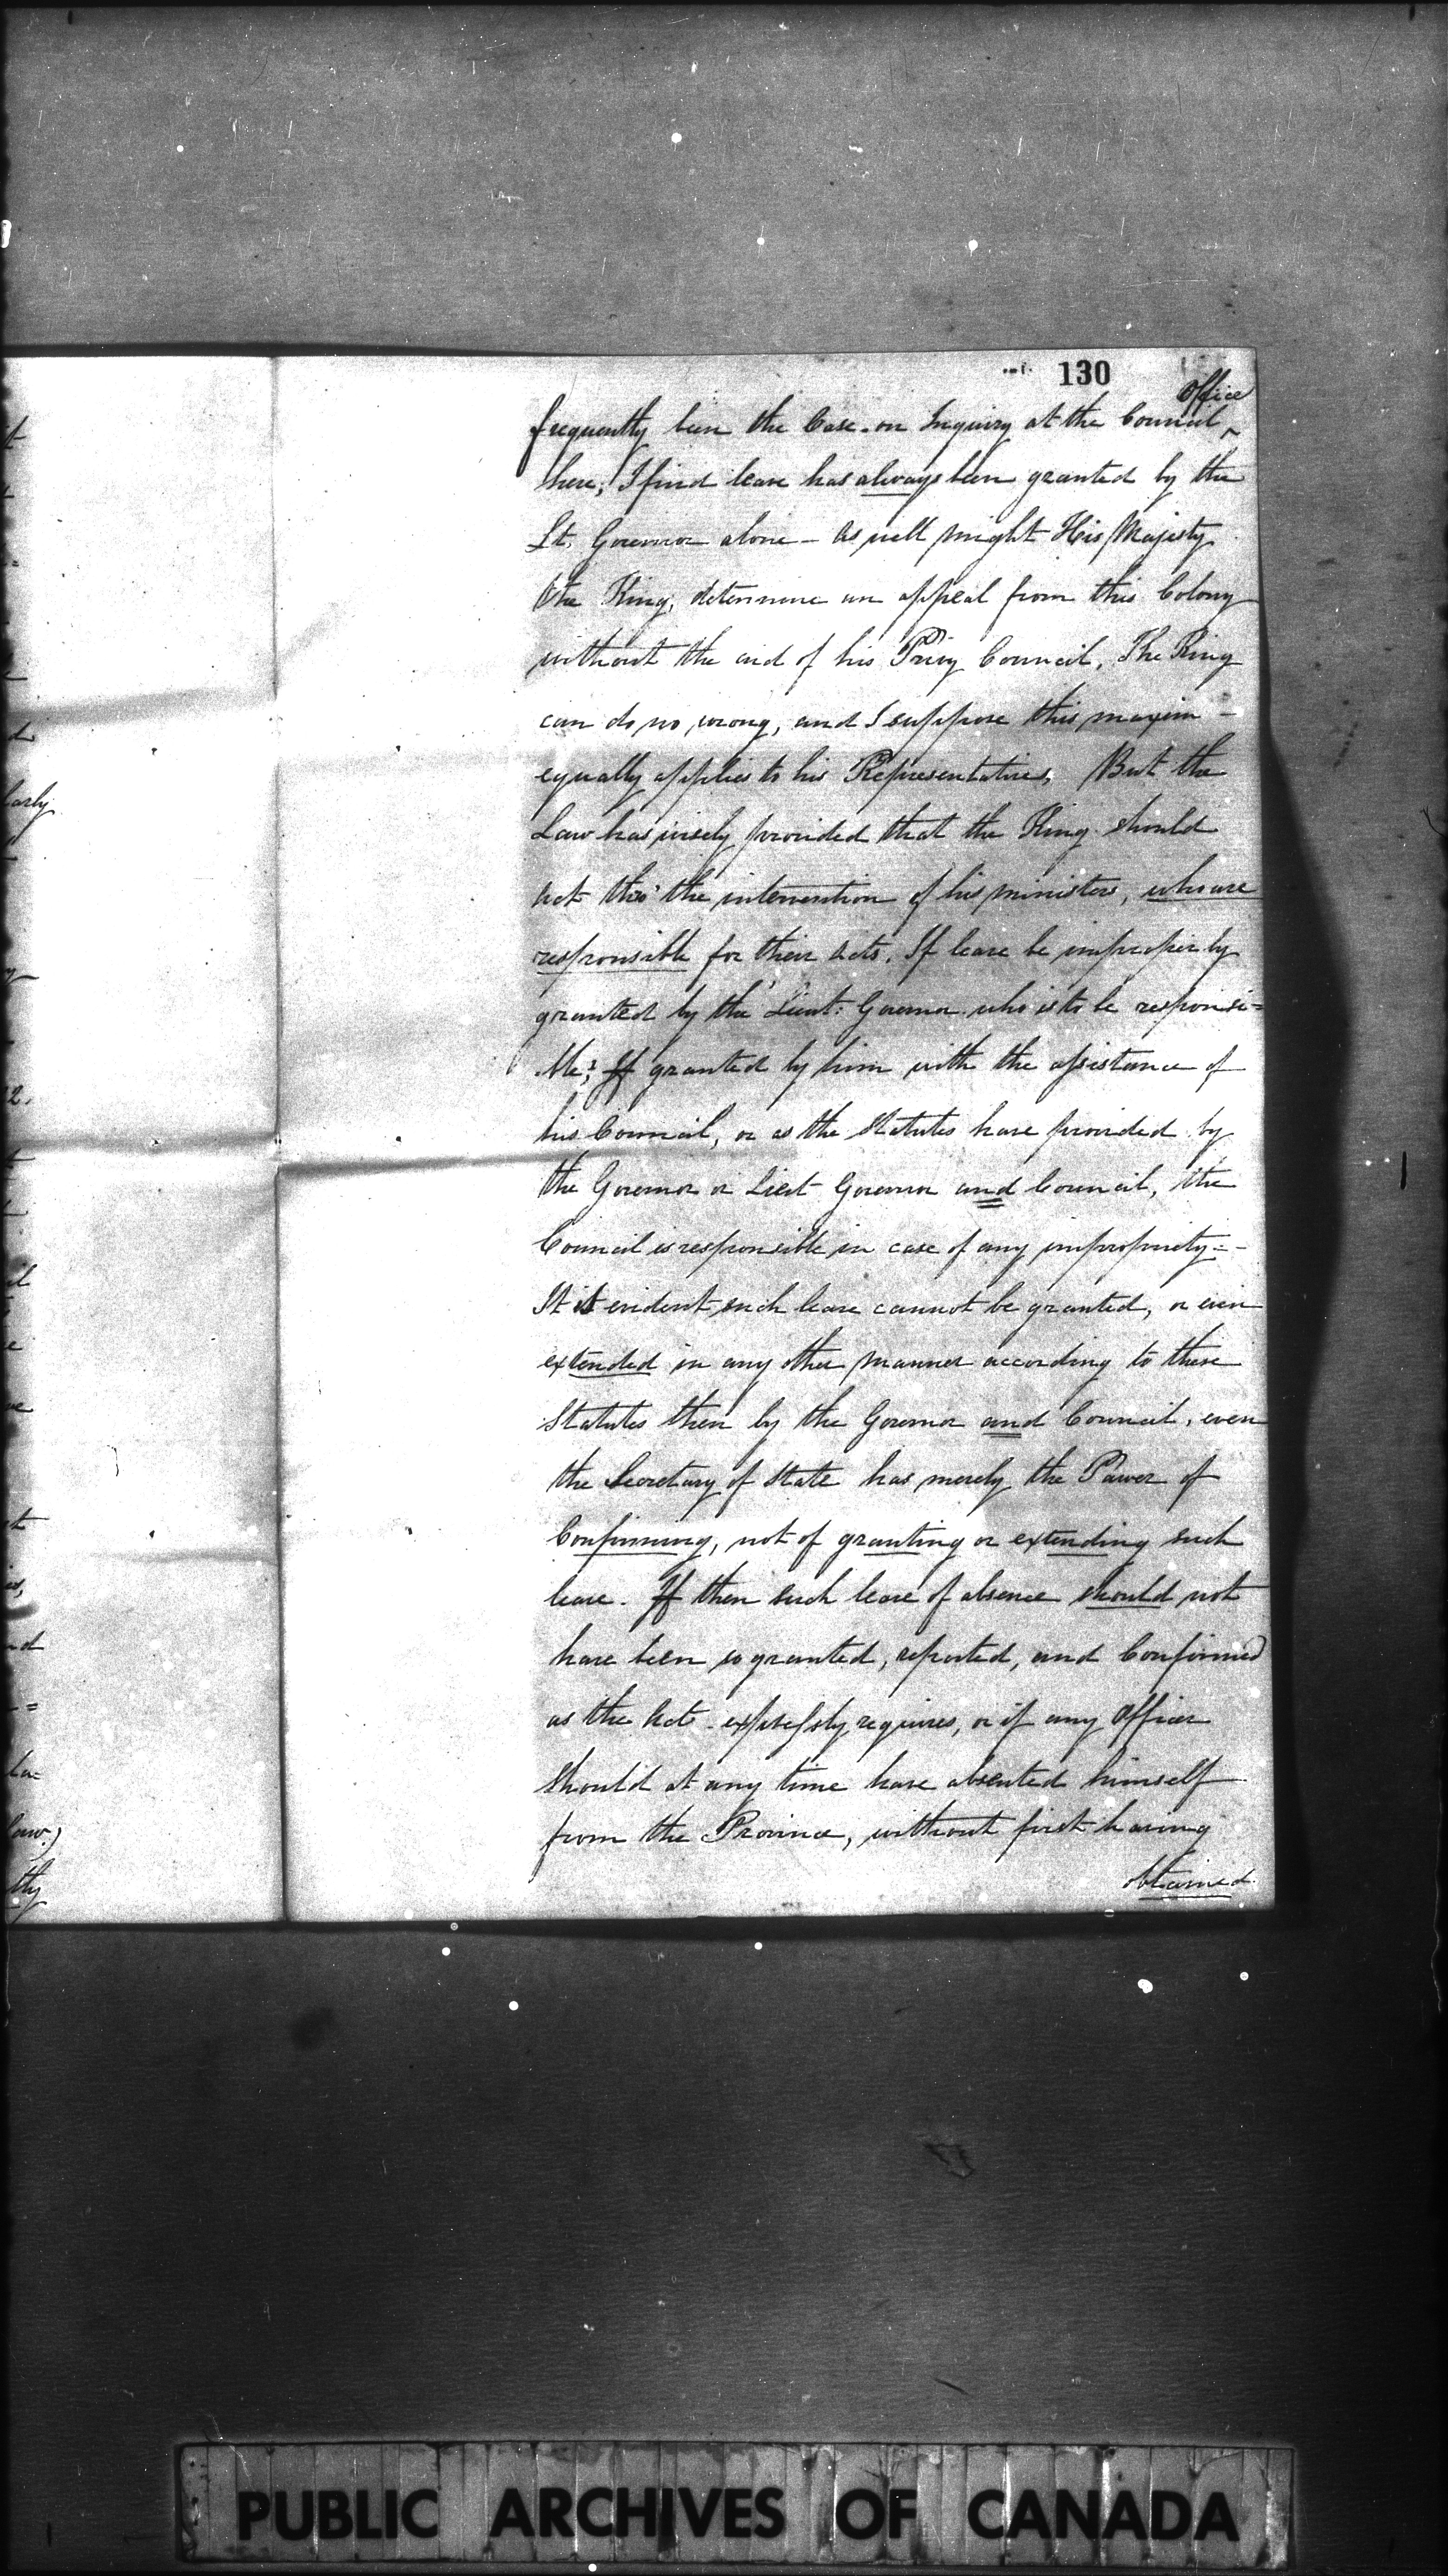 130
frequently been the Case. on Inquiry at the Council ^ Office
here; I find leave has always been granted by the
Lt. Governor alone – As well might His Majesty
the King, determine an appeal from this Colony
without the aid of his Privy Council. The King
can do no wrong, and I suppose this maxim –
equally applies to his Representatives, But the
Law has wisely provided that the King should
act thro' the intervention of his ministers, who are
responsible for their Acts. If leave be improperly
granted by the Lieut: Governor who is to be responsi=
ble; If granted by him with the assistance of
his Council, or as the Statutes have provided by
the Governor or Lieut Governor and Council, the
Council is responsible in case of any impropriety=–
It is evident such leave cannot be granted, or even
extended in any other manner according to these
Statutes then by the Governor and Council, even
the Secretary of State has merely the Power of
Confirming, not of granting or extending such
leave. If then such leave of absence should not
have been so granted, reported, and Confirmed
as the Act expressly requires, or if any Officer
should at any time have absented himself
from the Province, without first having
obtained
t
d
larly
y
2.
t
il
e
ve
t
nd
=
la=
law.)
tly
PUBLIC ARCHIVES OF CANADA